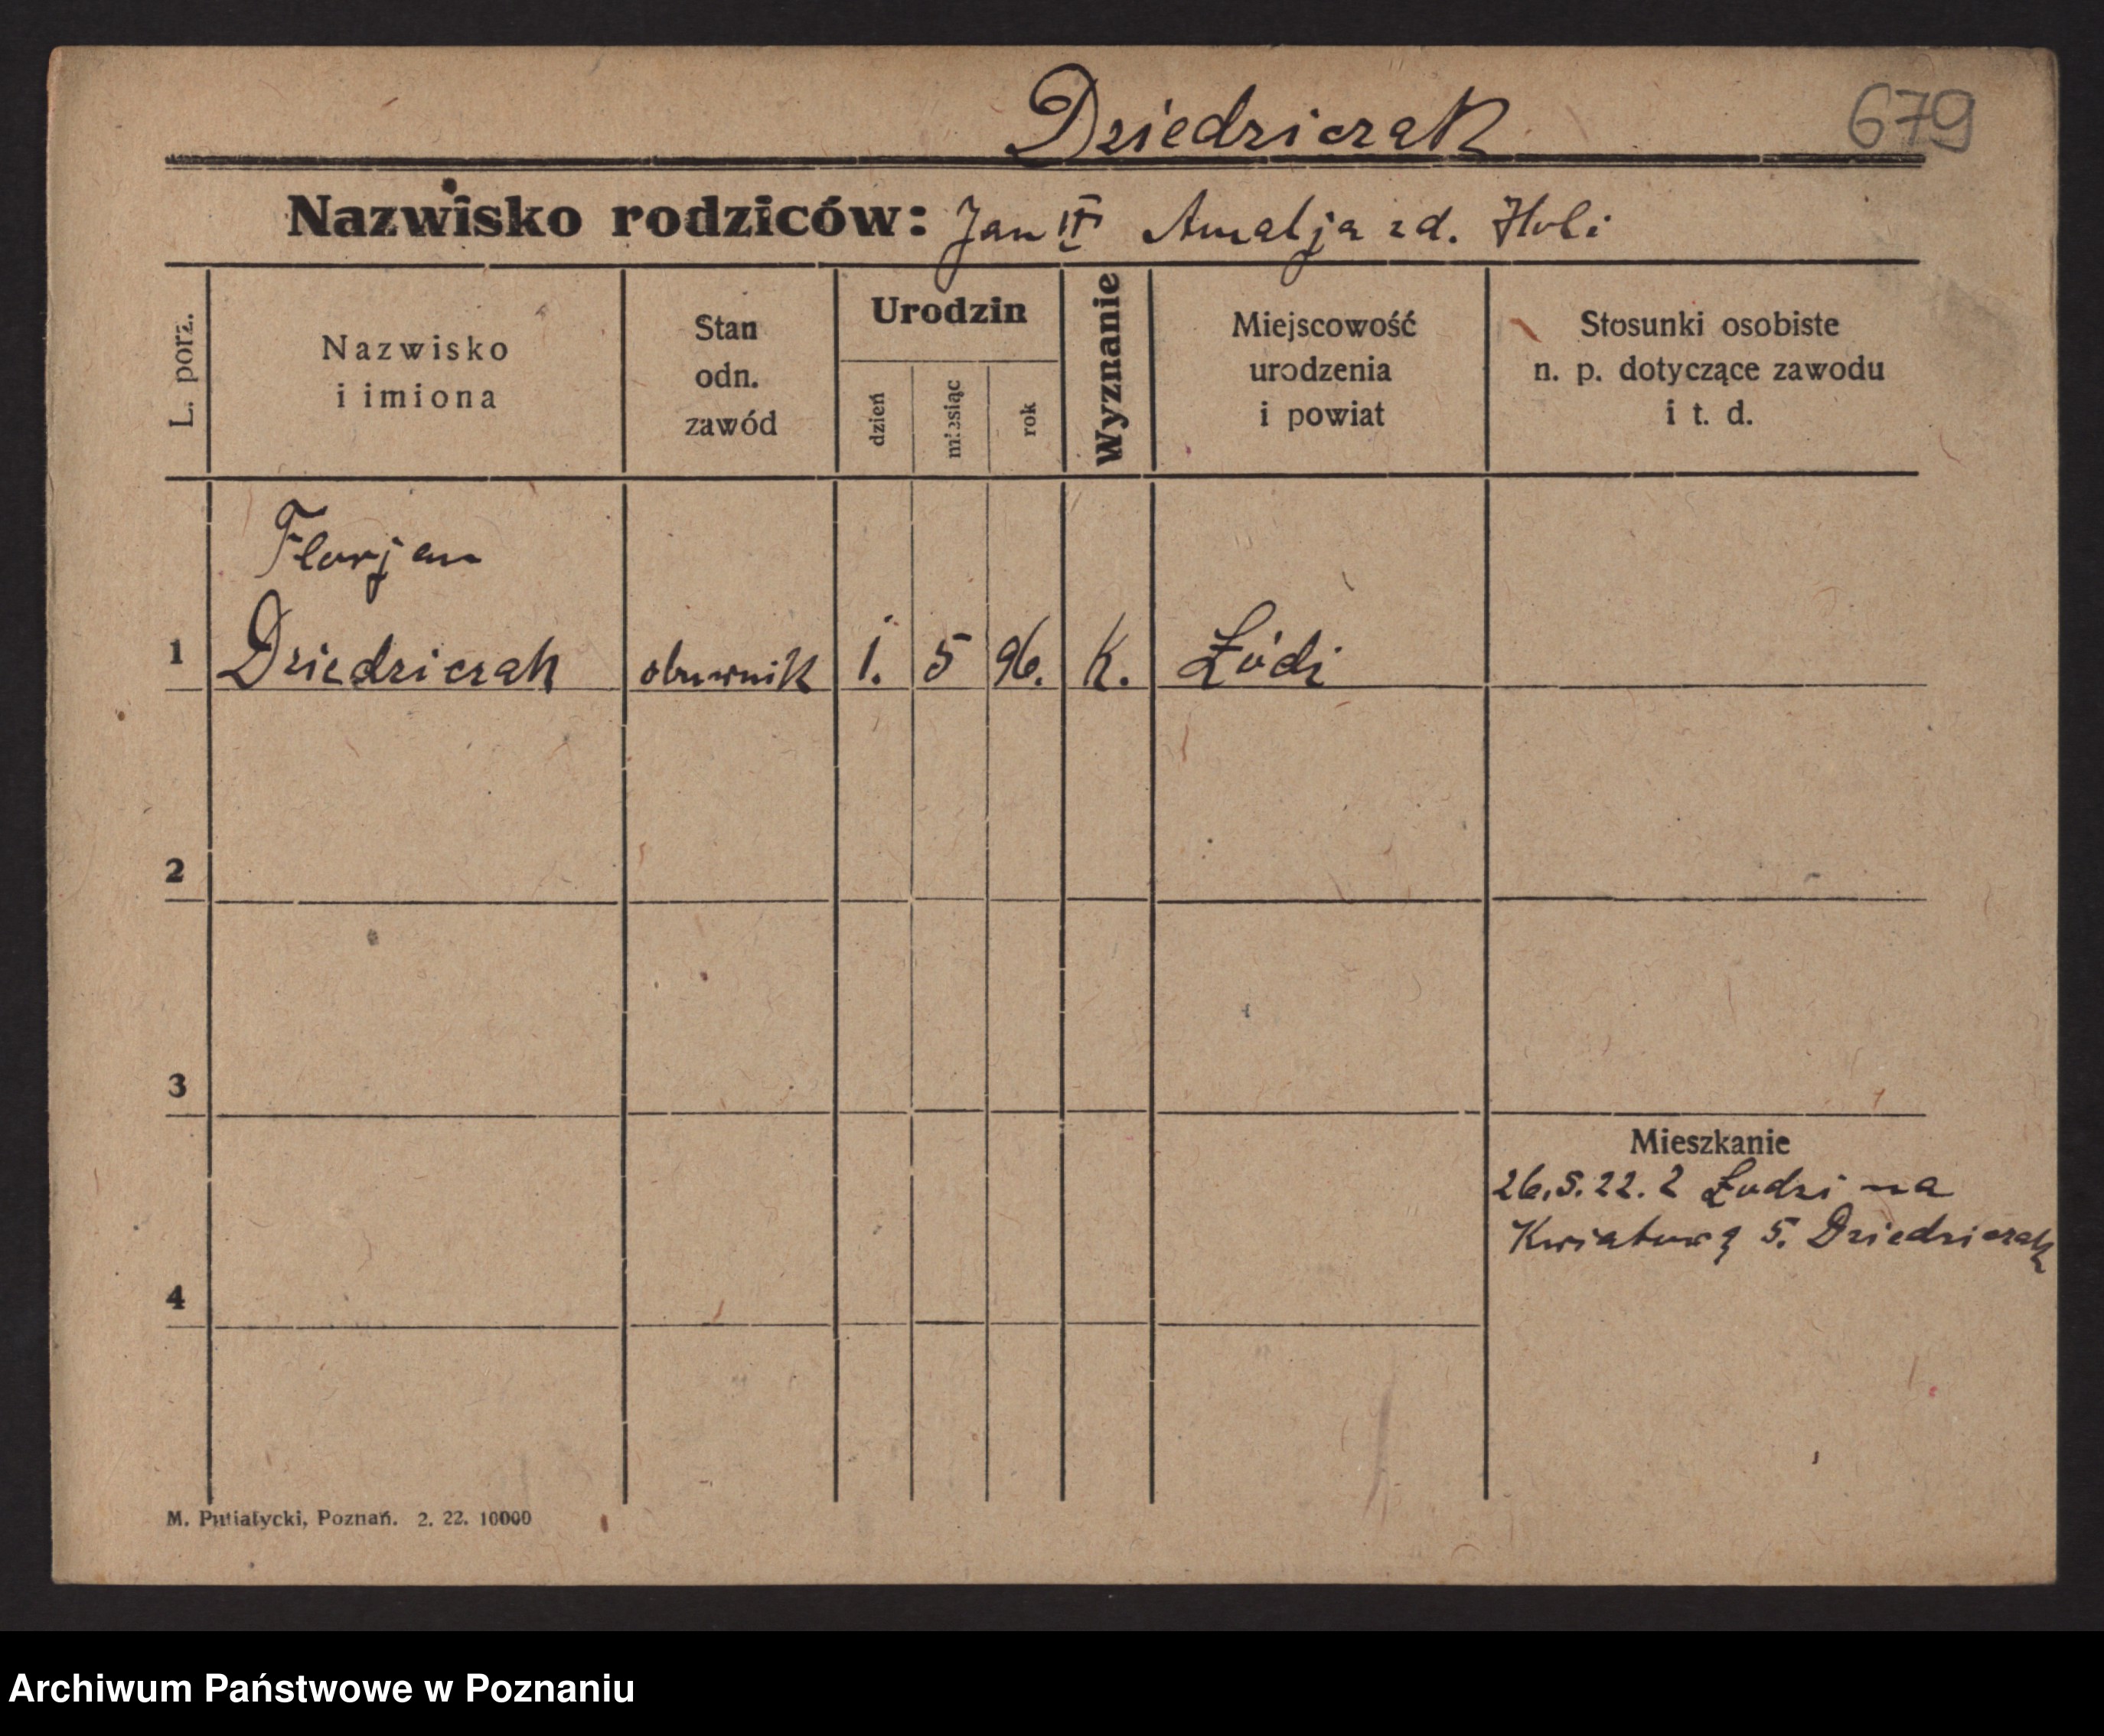 Dziedziczak 679
Nazwisko rodziców: Jan Amalja zd.
L. porz.
Nazwisko
i imiona
Stan
odn.
zawód
Urodzin
dzień
miesiąc
rok
Wyznanie
Miejscowość
urodzenia
i powiat
Stosunki osobiste
n. p. dotyczące zawodu
i t. d.
Florjan
1 Dziedziczak obuwnik 1. 5 96. K. Łódź
2
3
Mieszkanie
26.5.22. z Łodzi na
Kwiatową 5. Dziedziczak
4
M. Putiatycki, Poznań. 2. 22. 10000
Archiwum Państwowe w Poznaniu